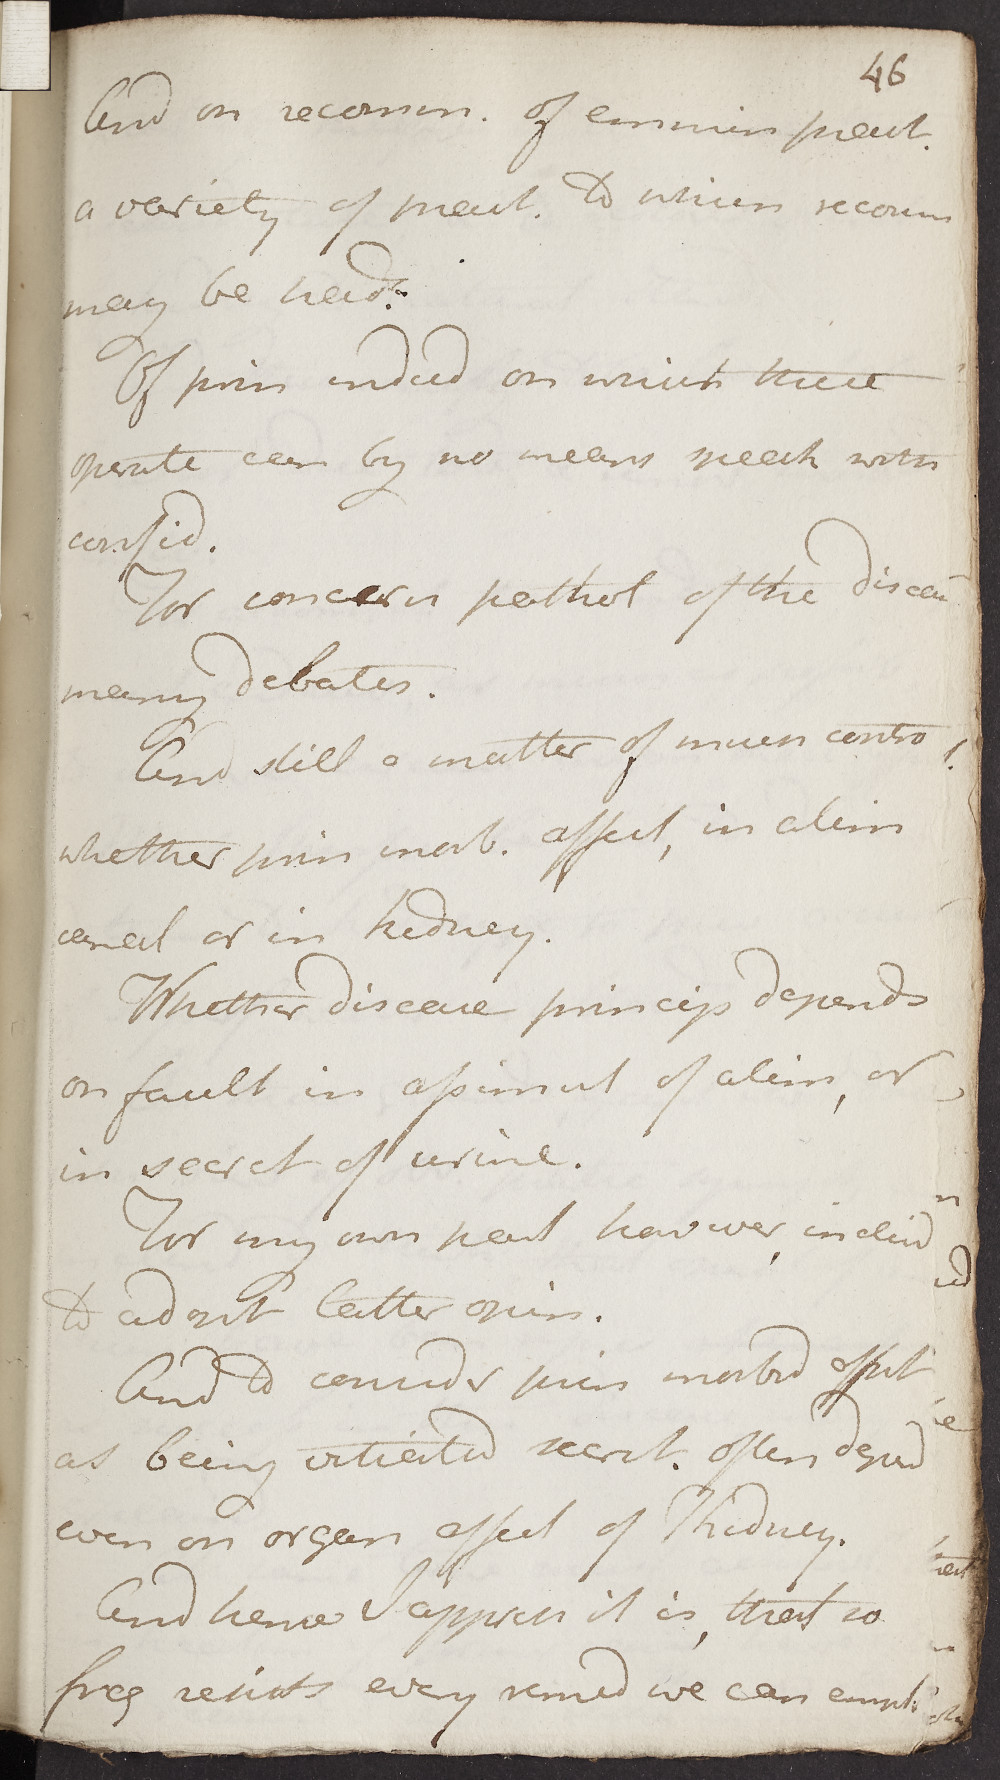 46
And on recomm. of eminen pract.
a variety of pract. to which recours
may be had.
Of prin indeed on which these
operate can by no means speak with
confid.
For concern pathol of the diseas
many debates.
And still a matter of much contro
whether prin morb. affect, in alim
canal or in kidney.
Whether disease princip depends
on fault in assimul of alim, or
in secret of urine.
For my own part however, inclin'd
to adopt latter opin.
And to consider prin morbid affect
as being vitiated secret. often depend
even on organ affect of Kidney.
And hence I appreh it is, that so
freq resists every remed we can empl